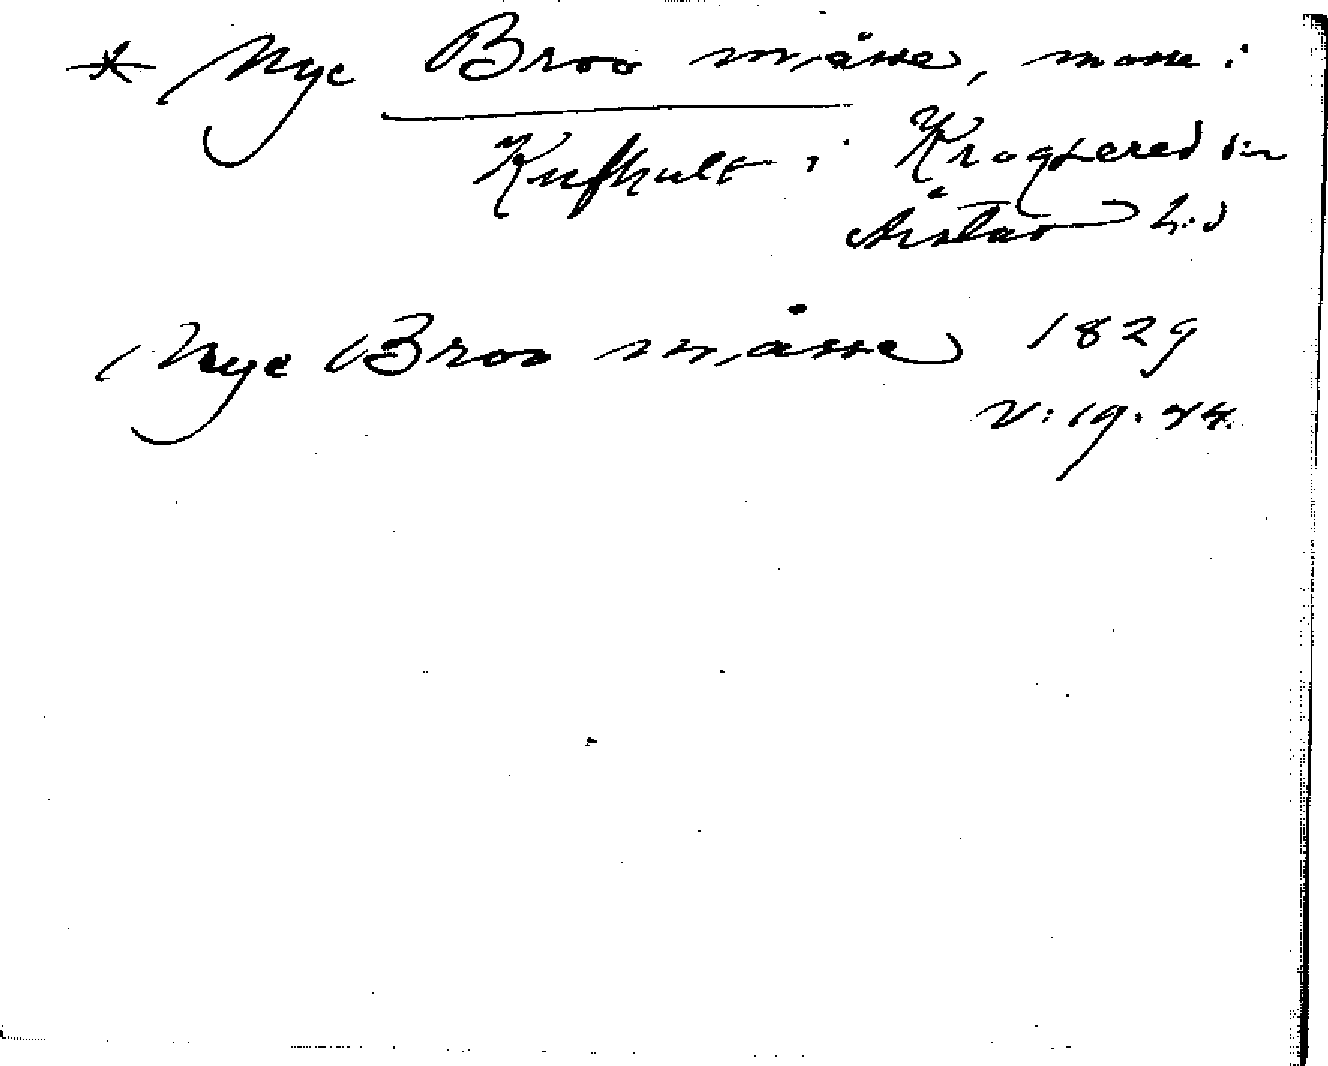 * Nye Broo måsse, mosse i
Kufhult i Krogsered sn
Årstad hd
Nye Broo måsse 1829
V:19.44.